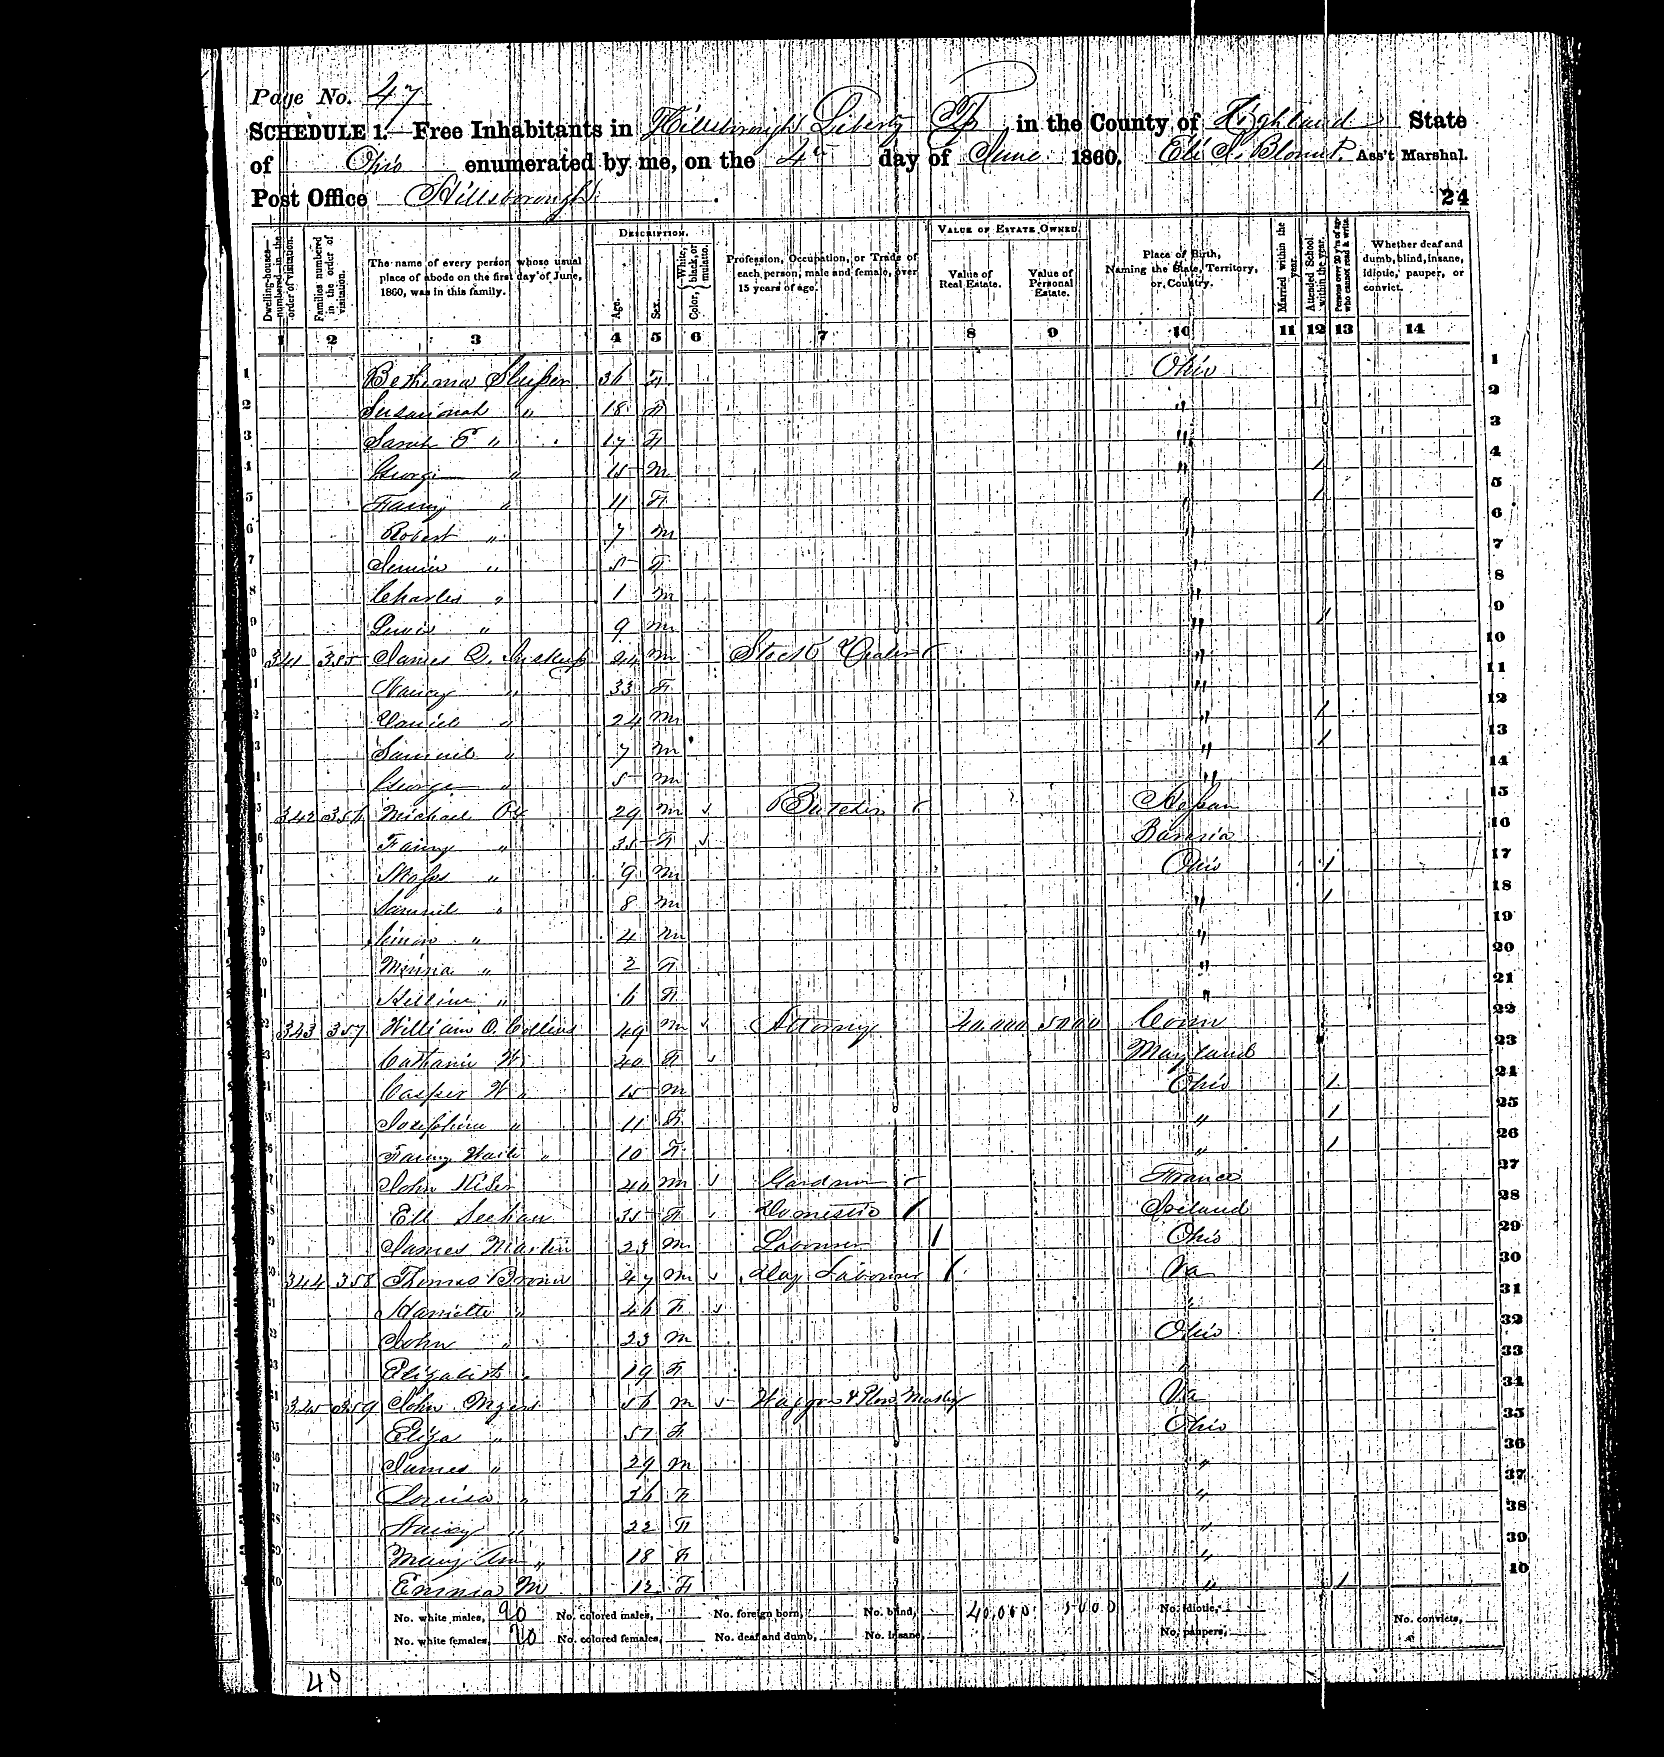 Page No. 47
SCHEDULE 1.—Free Inhabitants in Hillsborough Liberty Tp in the County of Highland State
of Ohio enumerated by me, on the 4th day of June 1860. Eli Ass't Marshal.
Post Office Hillsborough. 24
DESCRIPTION. VALUE OF ESTATE OWNED.
Dwelling-houses—numbered in the order of visitation. Families numbered in the order of visitation. The name of every person whose usual place of abode on the first day of June, 1860, was in this family. Age. Sex. Color, White, black, or mulatto. Profession, Occupation, or Trade of each person, male and female, over 15 years of age. Value of Real Estate. Value of Personal Estate. Place of Birth, Naming the State, Territory, or Country. Married within the year. Attended School within the year. Persons over 20 y'rs of age who cannot read & write. Whether deaf and dumb, blind, insane, idiotic, pauper, or convict.
1 2 3 4 5 6 7 8 9 10 11 12 13 14
1 36 F Ohio 1
2 Susannah " 18 F " 2
3 Sarah E " 17 F " 3
4 George " 15 M " 1 4
5 Fanny " 11 F " 1 5
6 Robert " 7 M " 6
7 " 5 F " 7
8 Charles " 1 M " 8
9 Lewis " 9 M " 1 9
341 355 James 44 M Stock Dealer " 10
Nancy " 33 F " 11
Daniel " 24 M " 1 12
Samuel " 7 M " 1 13
George " 5 M " 14
342 356 Michael 29 M Butcher 15
Fanny " 35 F Bavaria 16
" 9 M Ohio 1 17
Samuel " 8 M " 1 18
Simon " 4 M " 19
Minna " 2 F " 20
" 6 F " 21
343 357 William O. Collins 49 M Attorney 40,000 5000 Conn 22
Catharine W. 40 F Maryland 23
Casper W " 15 M Ohio 1 24
Josephine " 11 F " 1 25
Fanny " 10 F " 1 26
John 40 M Gardner France 27
35 F Domestic Ireland 28
James Martin 23 M Labourer Ohio 29
344 358 Thomas Brown 47 M Day Labourer Va 30
" 46 F " 31
John " 23 M Ohio 32
Elizabeth " 19 F " 33
345 359 John Myers 56 M Waggon & Plow Va 34
Eliza " 51 F Ohio 35
James " 29 M " 36
Louisa " 26 F " 37
Nancy " 22 F " 38
Mary Ann " 18 F " 39
Emma M 12 F " 1 40
No. white males, 20 No. colored males, No. foreign born, No. blind, 40,000 5000 No. idiotic, No. convicts,
No. white females, 20 No. colored females, No. deaf and dumb, No. insane, No. paupers,
40